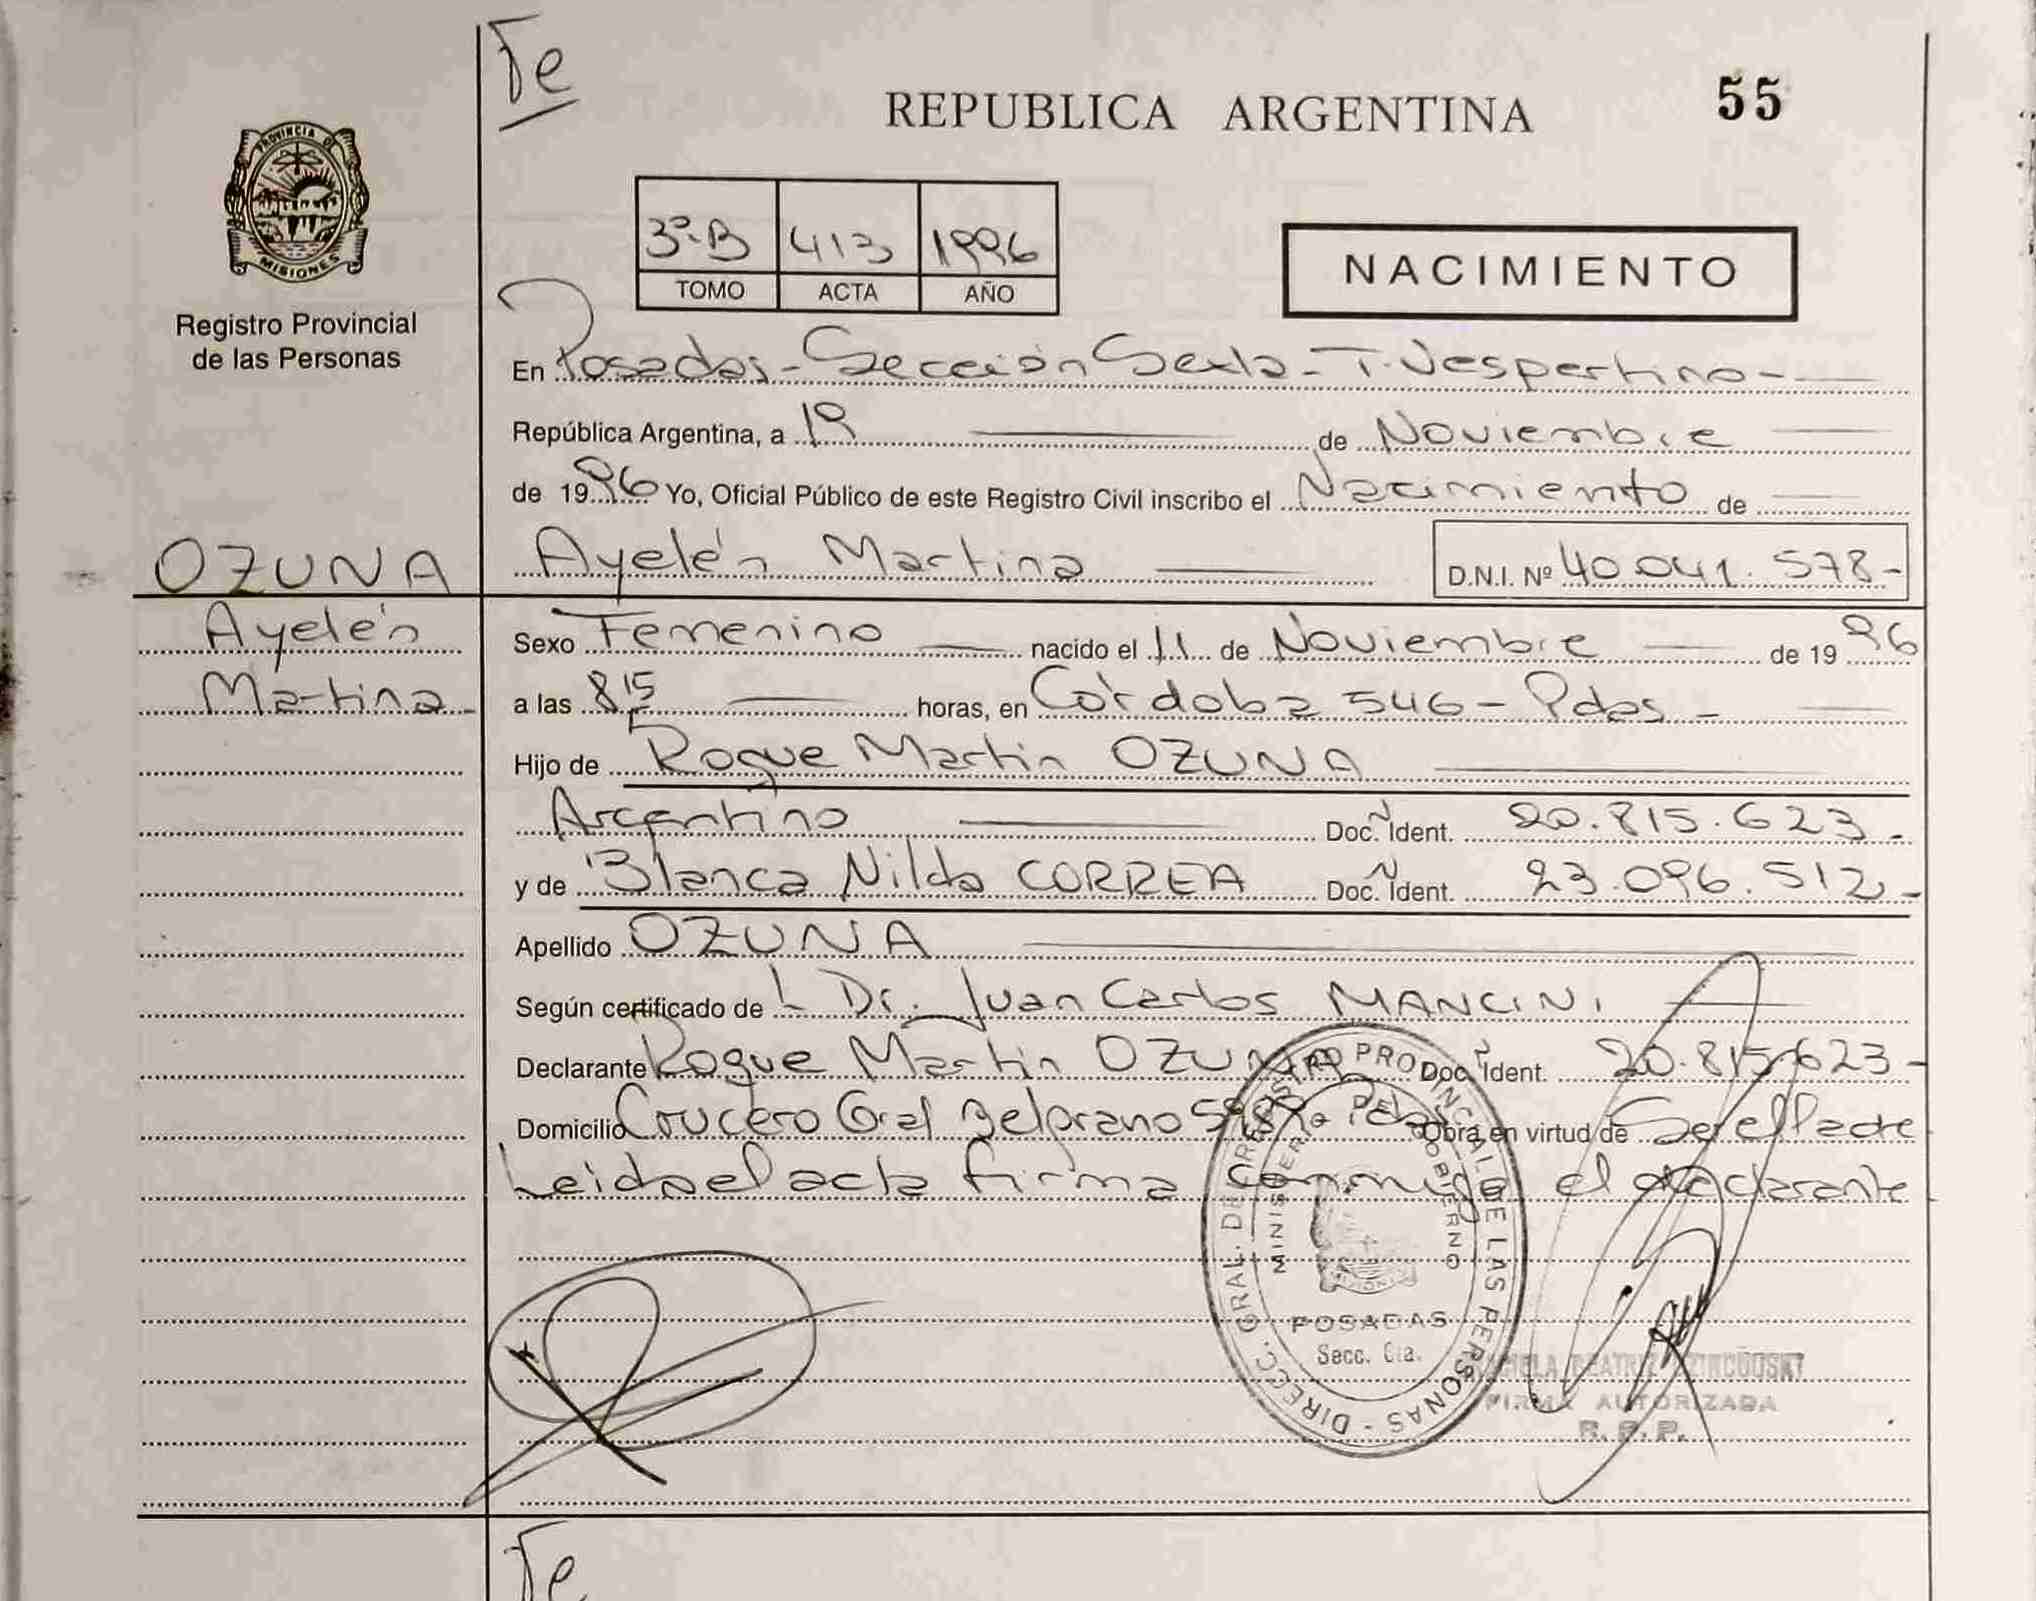 Fe
REPUBLICA ARGENTINA
55
PROVINCIA DE
MISIONES
Registro Provincial
de las Personas
3º-B 413 1996
TOMO ACTA AÑO
NACIMIENTO
En Posadas - Sección Sexta - T. Vespertino -
República Argentina, a 19 de Noviembre
de 1996 Yo, Oficial Público de este Registro Civil inscribo el Nacimiento de
OZUNA
Ayelén Martina
D.N.I. Nº 40.041.578-
Ayelén
Martina
Sexo Femenino nacido el 11 de Noviembre de 1996
a las 8,15 horas, en Córdoba 546 - Pdas -
Hijo de Roque Martin OZUNA
Argentino Doc. Ident. 20.815.623-
y de Blanca Nilda CORREA Doc. Ident. 23.096.512-
Apellido OZUNA
Según certificado de Dr. Juan Carlos MANCINI
Declarante Roque Martin OZUNA Doc. Ident. 20.815.623-
Domicilio Crucero Gral Belgrano Obra en virtud de
Leida el acta firma conmigo el declarante
DIRECC. GRAL. DE REGISTRO PROVINCIAL DE LAS PERSONAS -
MINISTERIO DE GOBIERNO
POSADAS
Secc. 6ta.
BEATRIZ
FIRMA AUTORIZADA
R. P. P.
Fe